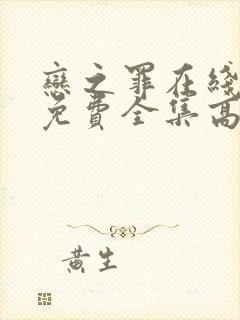 戀之罪在綫
免費全集高
黃生